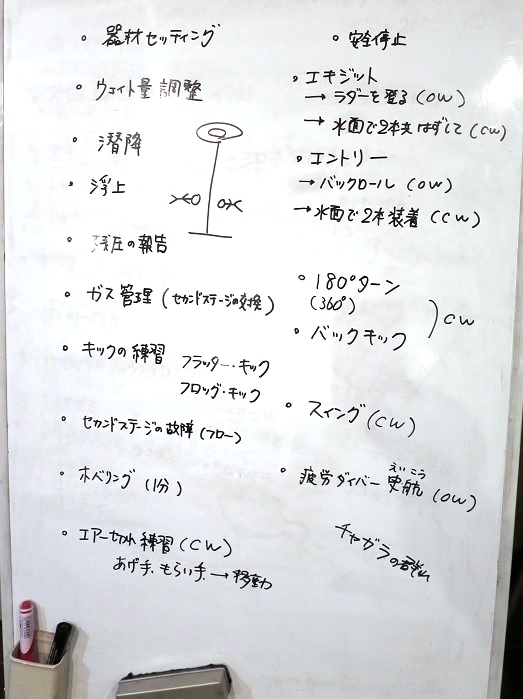 ・器材セッティング
・ウェイト量調整
・潜降
・浮上
・残圧の報告
・ガス管理(セカンドステージの交換)
・キックの練習 フラッター・キック
フロッグ・キック
・セカンドステージの故障(フロー)
・ホバリング(1分)
・エアー切れ練習(CW)
あげ手、もらい手、→移動
・安全停止
・エキジット
→ラダーを登る(OW)
→水面で2本はずして(CW)
・エントリー
→バックロール(OW)
→水面で2本装着(CW)
・180°ターン
(360°)
・バックキック
CW
・スイング(CW)
・疲労ダイバー曳航(OW)
えいこう
チャガラの群れ